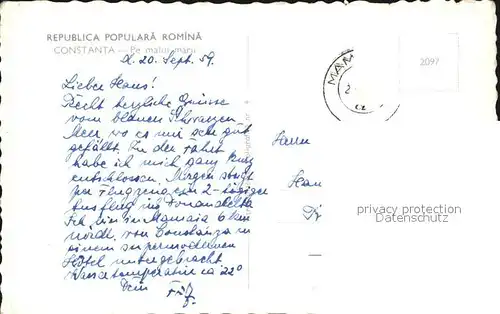 REPUBLICA POPULARĂ ROMÎNĂ
CONSTANȚA — Pe malul mării
d. 20. Sept. 59.
Lieber Hans!
Recht herzliche Grüsse
vom blauen Schwarzen
Meer, wo es mir sehr gut
gefällt. Zu der Fahrt
habe ich mich ganz kurz
entschlossen. Morgen steigt
per Flugzeug ein 2-tägiger
Ausflug ins Donaudelta
Ich bin in Mamaia 6 km
nördl. von Constanza in
einem supermodernen
Hotel untergebracht
Wassertemperatur ca 22°
Dein
Fritz
MAM
2097
Herrn
Hans
privacy protection
Datenschutz